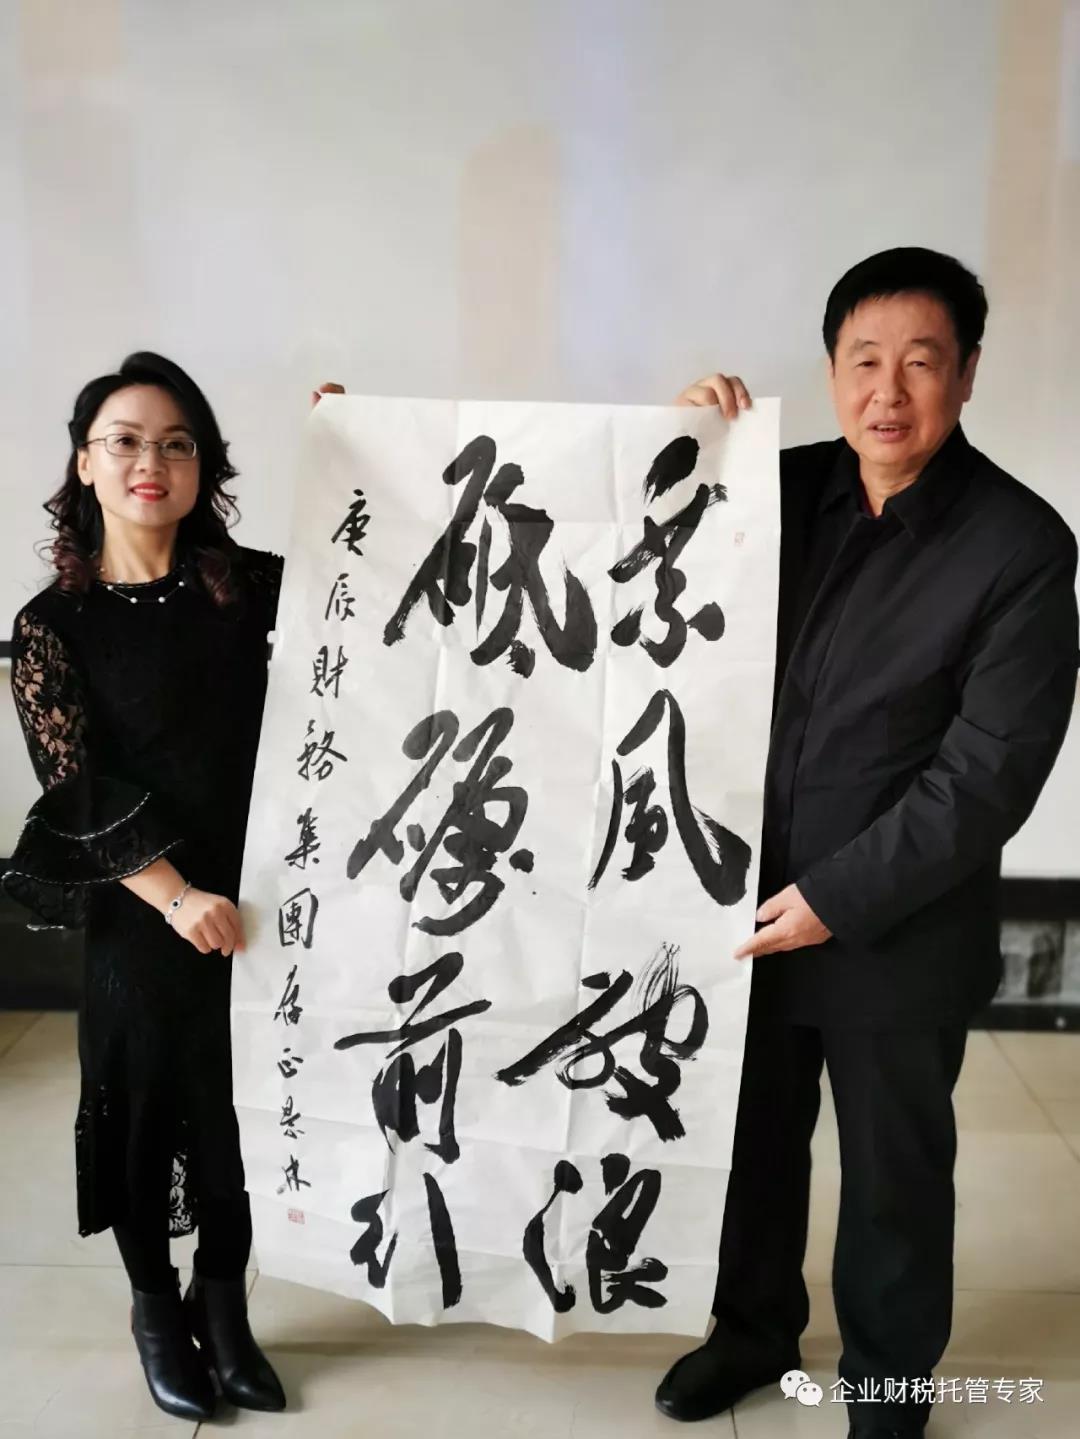 乘风破浪
砥礪前行
庚辰財務集團存正恩林
企业财税托管专家